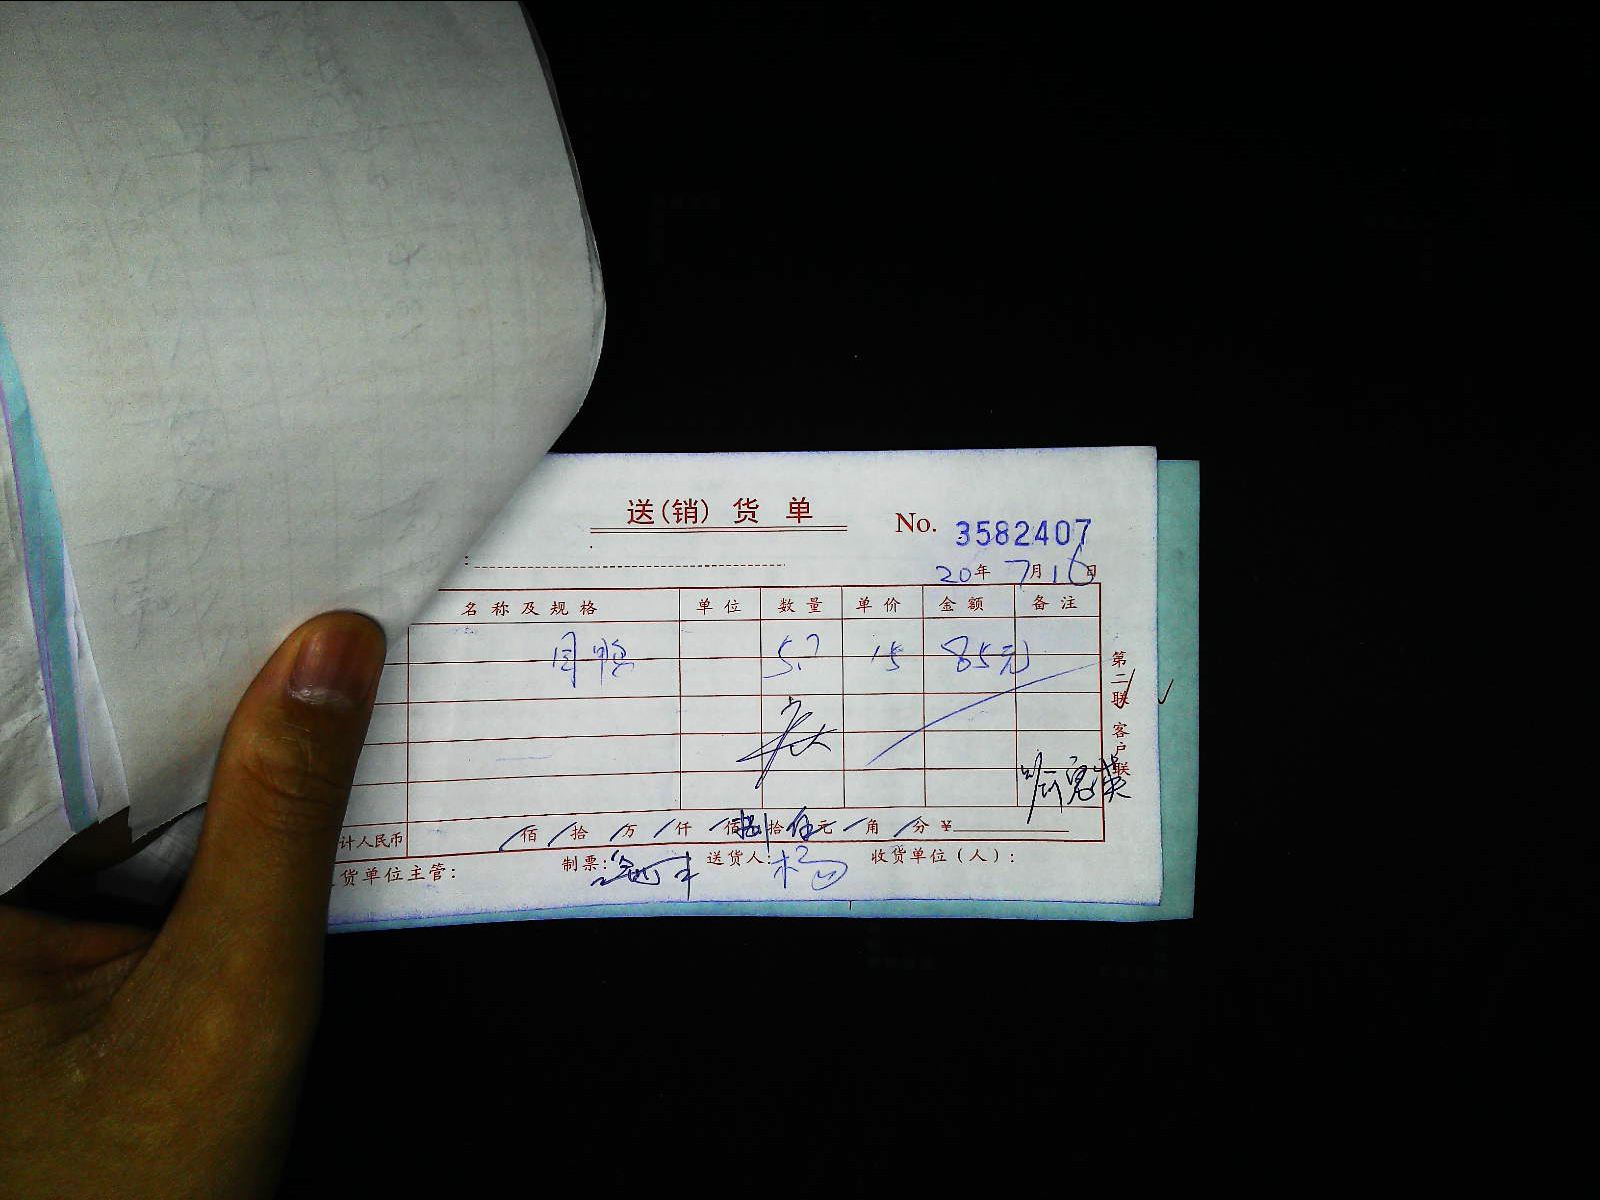 送(销)货单
No. 3582407
:
20年7月16日
名称及规格 单位 数量 单价 金额 备注
鸭 5.7 15 85元
第二联 客户联
计人民币 佰 拾 万 仟 佰 捌拾伍元 角 分 ¥
货单位主管: 制票: 送货人:杨 收货单位(人):